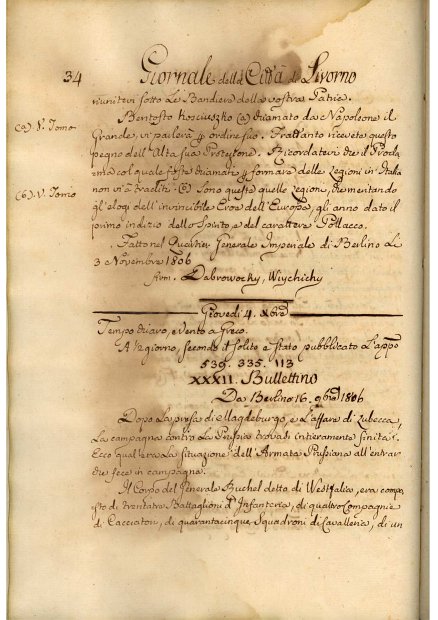 34 Giornale della Città di Livorno
riunitevi sotto le Bandiere della vostra Patria.
Bentosto Kosciuszko (a) chiamato da Napoleone il
(a) V. Tomo
Grande, vi parlerà p ordine suo. Frattanto ricevete questo
pegno dell'Alta sua Protezione. Ricordatevi che il Proclama
col quale foste chiamati p formare delle Legioni in Italia
(b) V. Tomo
non vi à traditi. (b) Sono queste quelle Legioni, che meritando
gl'elogi dell'invincibile Eroe dell'Europa, gli anno dato il
primo indizio dello Spirito e del carattere Pollacco.
Fatto nel Quartier Generale Imperiale di Berlino Le
3 Novembre 1806
firm. Dabrowocky, Wiychichy
Giovedì 4. Xbre
Tempo chiaro, e vento a Greco.
A ½ giorno, secondo il solito è stato pubblicato L'appo
539. 335. 113
XXXII. Bullettino
Da Berlino 16. 9bre 1806
Dopo la presa di Magdeburgo, e L'affare di Lubecca,
La campagna contro La Prussia trovasi intieramente finita.
Ecco qual'era la situazione dell'Armata Prussiana all'entrar
che fece in campagna.
Il Corpo del Generale Ruchel detto di Westfalia, era compo
sto di trentatre Battaglioni d'Infanteria, di quattro Compagnie
di Cacciatori, di quarantacinque Squadroni di Cavalleria, di un